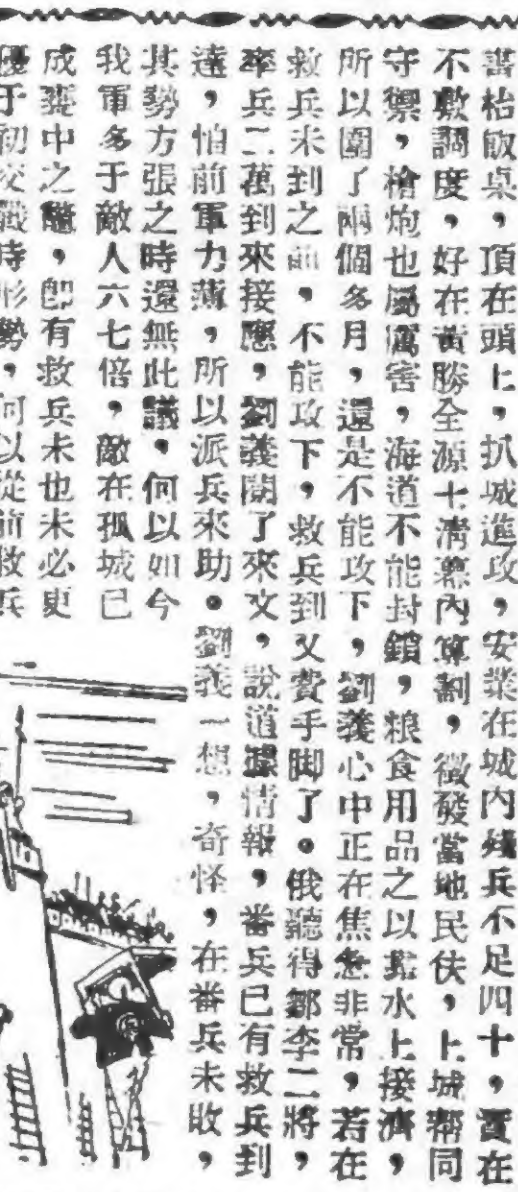 書枱飯桌，頂在頭上，扒城進攻，安業在城內殘兵不足四十，實在
不敷調度，好在黃勝全源十清幕內算劃，徵發當地民伕，上城幫同
守禦，槍炮也屬厲害，海道不能封鎖，粮食用品之以靠水上接濟，
所以圍了兩個多月，還是不能攻下，劉義心中正在焦急非常，若在
救兵未到之前，不能攻下，救兵到又費手脚了。俄聽得鄒李二將，
率兵二萬到來接應，劉義閱了來文，說道據情報，番兵已有救兵到
達，怕前軍力薄，所以派兵來助。劉義一想，奇怪，在番兵未敗，
其勢方張之時還無此議，何以如今
我軍多于敵人六七倍，敵在孤城已
成甕中之鼈，卽有救兵未也未必更
優于初交戰時形勢，何以從前救兵